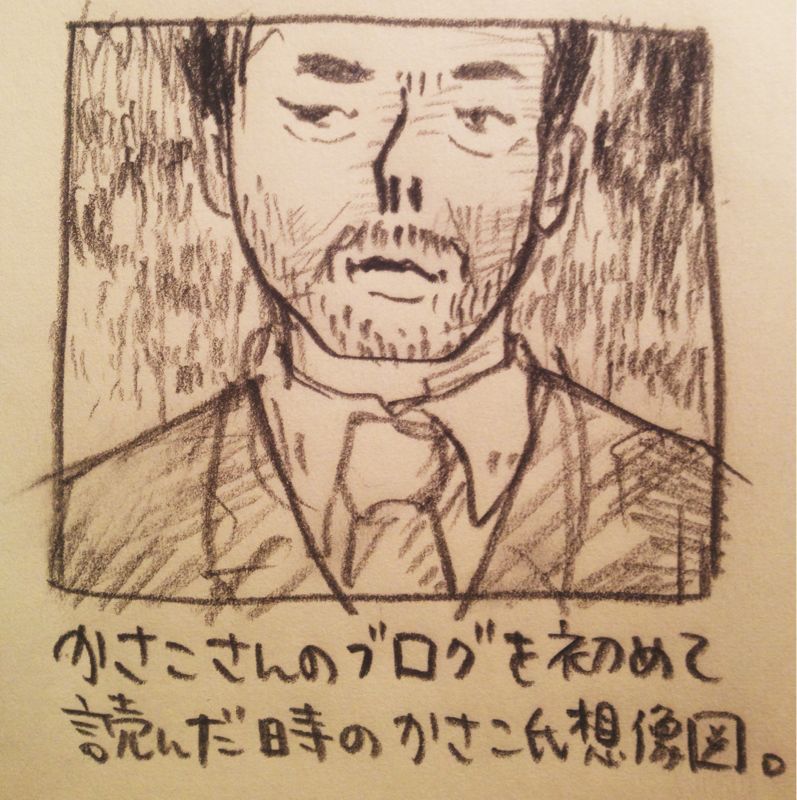 かさこさんのブログを初めて
読んだ時のかさこ氏想像図。